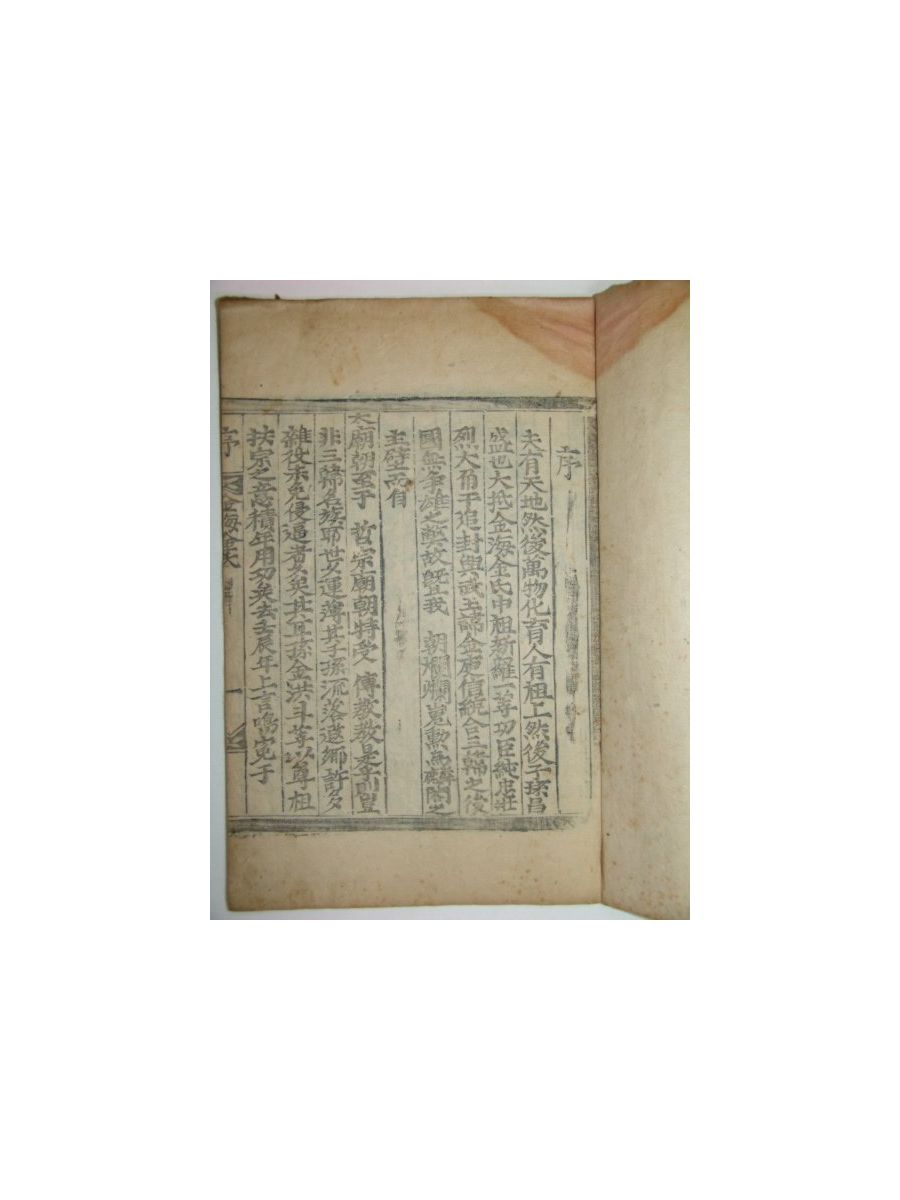 序
夫有天地然後萬物化育人有祖上然後子孫昌
盛也大抵金海金氏中祖新羅一等功臣純忠壯
烈大角干追封興武王諱金庾信統合三韓之後
國無爭雄之獘故曁我 朝爛爛嵬勳麟閣之
主壁而自
太廟朝至于 哲宗廟朝特受 傳教教是乎則豈
非三韓名族耶世久運薄其子孫流落遐鄉許多
雜役未免侵逼者久矣其耳孫金洪斗等以尊祖
扶宗之意積年用功矣去壬辰年上言鳴寃于
序 金海金氏 一